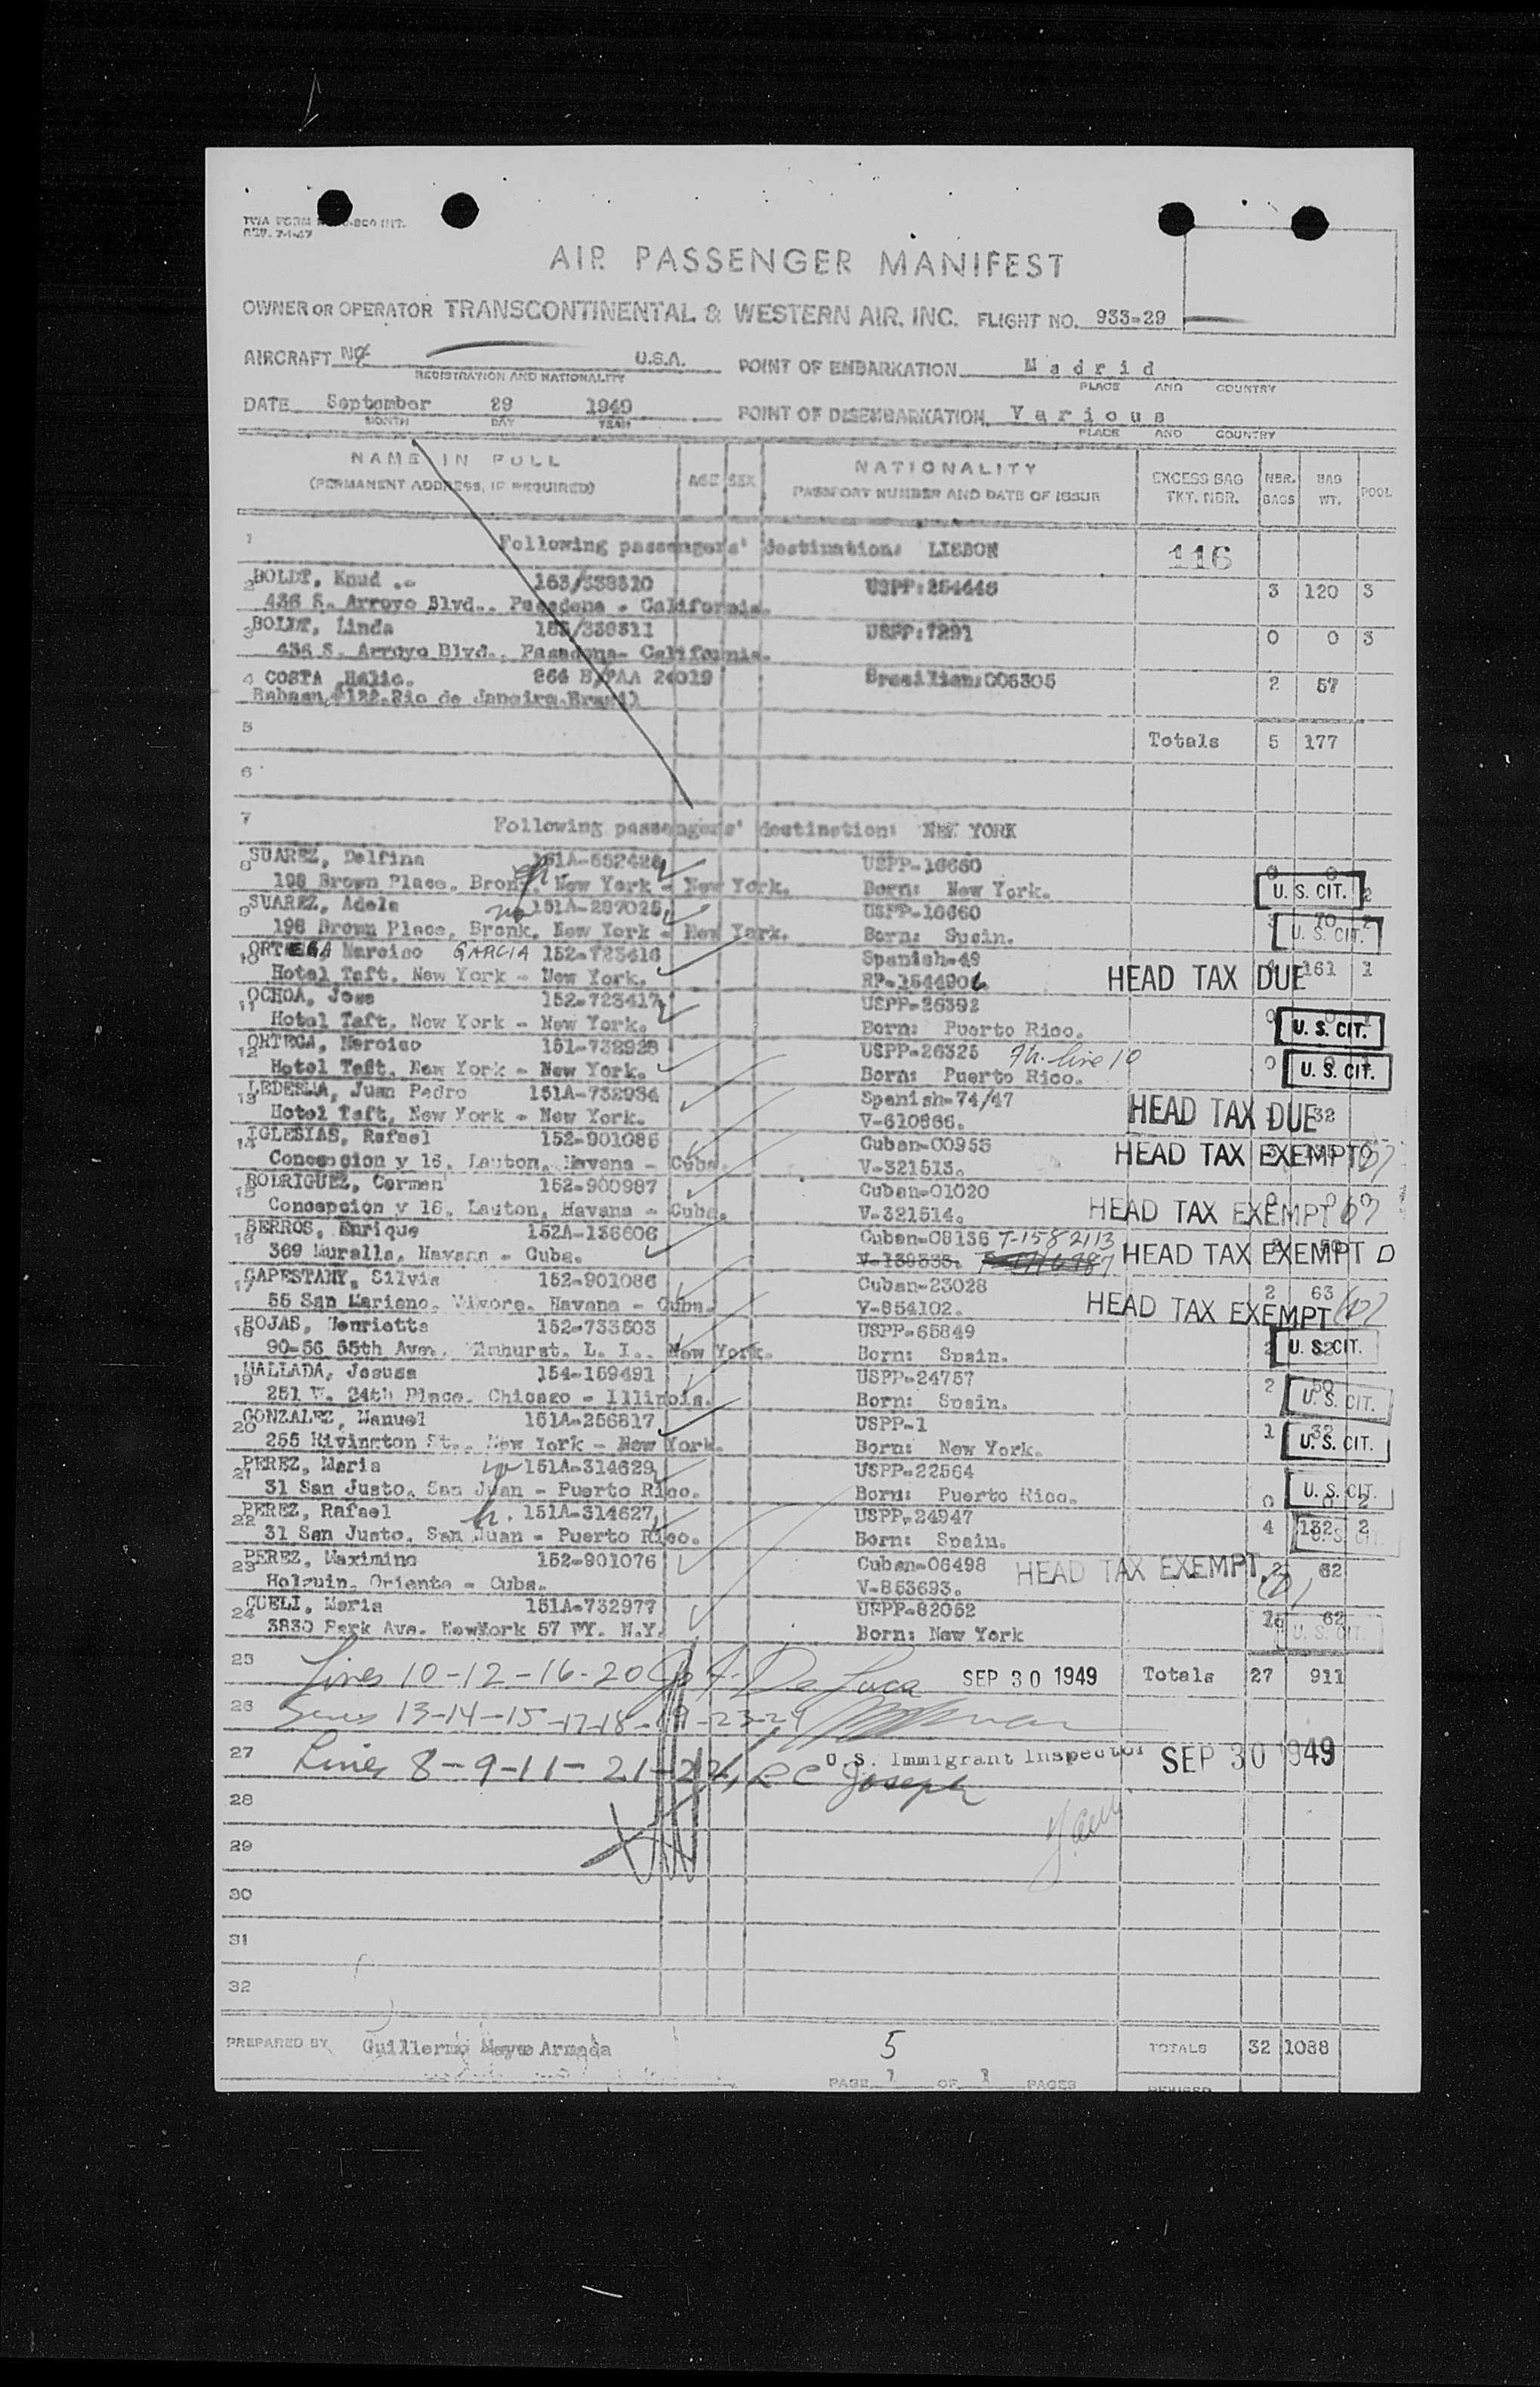 AIR PASSENGER MANIFEST
OWNER OR OPERATOR TRANSCONTINENTAL & WESTERN AIR, INC. FLIGHT NO. 933-29
AIRCRAFT U.S.A. POINT OF EMBARKATION Madrid
REGISTRATION AND NATIONALITY PLACE AND COUNTRY
DATE September 29 1949 POINT OF DISEMBARKATION Various
MONTH DAY YEAR PLACE AND COUNTRY
NAME IN FULL AGE SEX NATIONALITY EXCESS BAG NBR. BAG POOL
(PERMANENT ADDRESS, IF REQUIRED) PASSPORT NUMBER AND DATE OF ISSUE TKT. NBR. BAGS WT.
1 Following passengers' destination: LISBON 116
2 BOLDT, Knud 153/338310 USPP: 3 120 3
436 S. Arroyo Blvd., Pasadena - California.
3 BOLDT, Linda 153/338311 USPP:7291 0 0 3
436 S. Arroyo Blvd., Pasadena- California.
4 COSTA 264 B/PAA 24019 Brasilian:006305 2 57
#122.Rio de Janeiro.Brasil
5 Totals 5 177
6
7 Following passengers' destination: NEW YORK
8 SUAREZ, Delfina USPP-16660 0 0
198 Brown Place, Bronx, New York - New York. Born: New York. U. S. CIT. 2
9 SUAREZ, Adela 151A-287025 USPP-16660 3 70 2
198 Brown Place, Bronk, New York - New York. Born: Spain. U. S. CIT.
10 ORTEGA Narciso GARCIA 152-723416 Spanish-49 161 1
Hotel Taft, New York - New York. RP-1544906 HEAD TAX DUE
11 OCHOA, Jose 152-723417 USPP-26392 0
Hotel Taft, New York - New York. Born: Puerto Rico. U. S. CIT.
12 ORTEGA, Narciso 151-732928 USPP-26325 line 10 0 0 1
Hotel Taft, New York - New York. Born: Puerto Rico. U. S. CIT.
13 LEDESMA, Juan Pedro 151A-732934 Spanish-74/47 32
Hotel Taft, New York - New York. V-610866. HEAD TAX DUE
14 IGLESIAS, Rafael 152-901086 Cuban-00955
Concepcion y 16, Lauton, Havana - Cuba. V-321513. HEAD TAX EXEMPT
15 RODRIGUEZ, Carmen 152-900987 Cuban-01020
Concepcion y 16, Lauton, Havana - Cuba. V-321514. HEAD TAX EXEMPT
16 BERROS, Enrique 152A-136606 Cuban-08136 T-1582113
369 Muralla, Havana - Cuba. HEAD TAX EXEMPT
17 CAPESTANY, Silvia 152-901086 Cuban-23028 2 63
55 San Mariano, Havana - Cuba. V-854102. HEAD TAX EXEMPT
18 ROJAS, Henrietta 152-733503 USPP-65849
90-56 55th Ave. Elmhurst. L. I., New York. Born: Spain. U. S. CIT.
19 MALLADA, Jesusa 154-159491 USPP-24757 2 50
251 W. 24th Place. Chicago - Illinois. Born: Spain. U. S. CIT.
20 GONZALEZ, Manuel 151A-256817 USPP-1 1 32
255 Rivington St., New York - New York. Born: New York. U. S. CIT.
21 PEREZ, Maria 151A-314629 USPP-22564
31 San Justo, San Juan - Puerto Rico. Born: Puerto Rico. U. S. CIT. 0 0 2
22 PEREZ, Rafael 151A-314627 USPP-24947 4 132 2
31 San Justo, San Juan - Puerto Rico. Born: Spain. U. S. CIT.
23 PEREZ, Maximino 152-901076 Cuban-06498 HEAD TAX EXEMPT 2 62
Holguin, Oriente - Cuba. V-853693.
24 CUELI, Maria 151A-732977 USPP-82052 62
3830 Park Ave. NewYork 57 NY. N.Y. Born: New York U. S. CIT.
25 Lines 10-12-16-20 De Luca SEP 30 1949 Totals 27 911
26 Lines 13-14-15-17-18-19-23-24
27 Lines 8-9-11-21-22, R C Joseph U. S. Immigrant Inspector SEP 30 1949
28
29
30
31
32
PREPARED BY Guillermo Armada 5 TOTALS 32 1088
PAGE 1 OF 1 PAGES